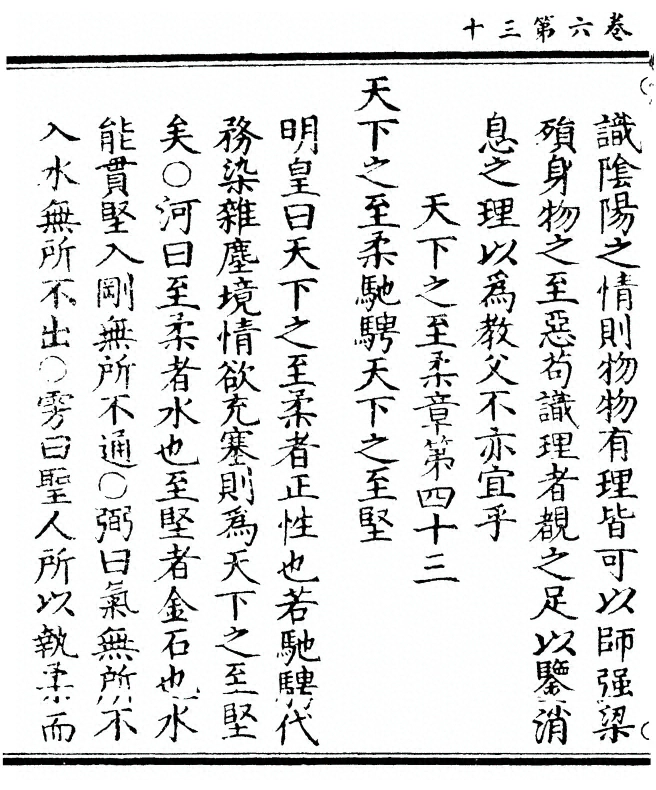 十三第六卷
識陰陽之情則物物有理皆可以師强梁
殞身物之至惡苟識理者覩之足以鑒消
息之理以為教父不亦宜乎
天下之至柔章第四十三
天下之至柔馳騁天下之至堅
明皇曰天下之至柔者正性也若馳騁代
務染雜塵境情欲充塞則為天下之至堅
矣○河曰至柔者水也至堅者金石也水
能貫堅入剛無所不通○弼曰氣無所不
入水無所不出○雱曰聖人所以執柔而